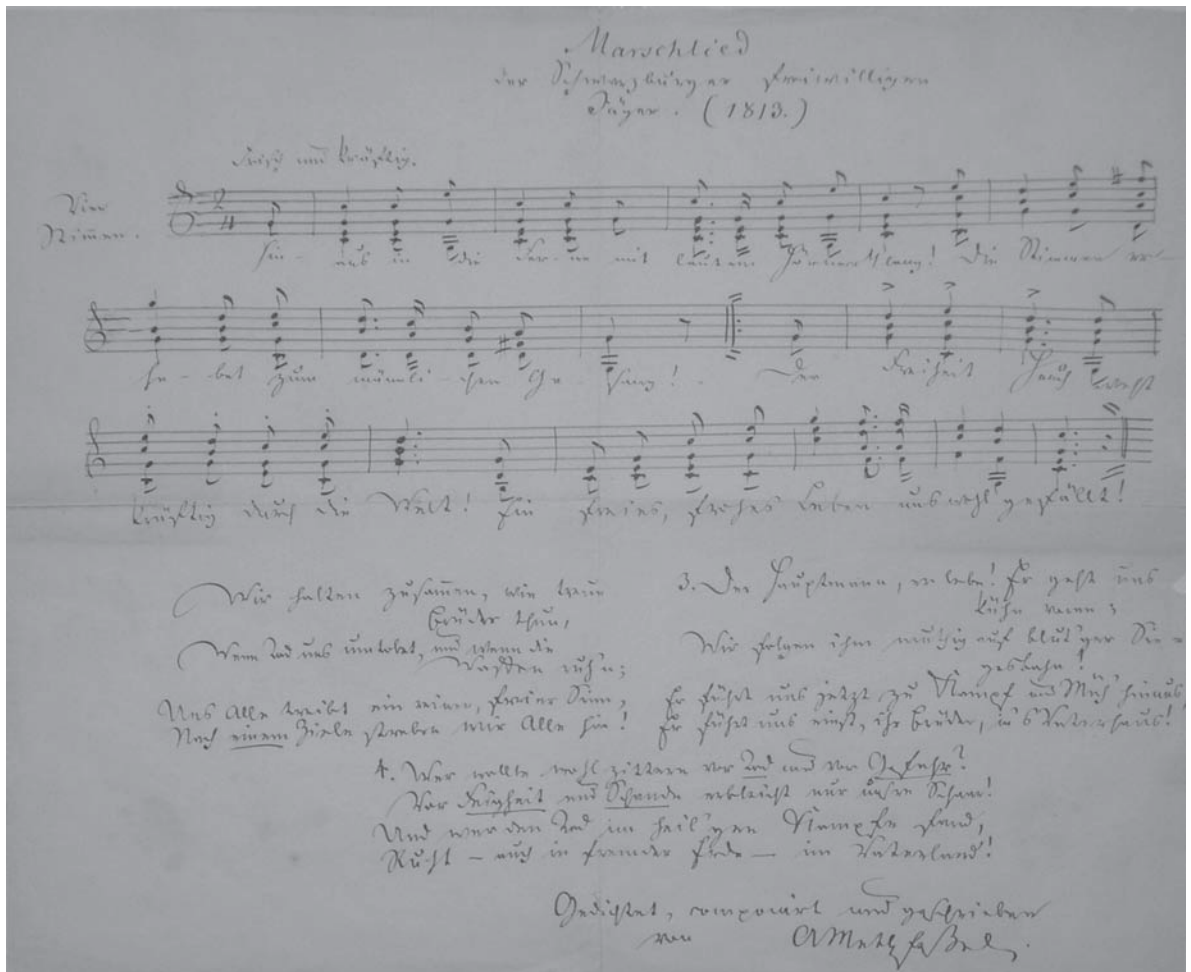 Marschlied
der Schwarzburger freiwilligen
Jäger. (1813.)
Frisch und kräftig.
Vier
Stimmen.
2
4
Hin- aus in die Fer-ne mit lautem Hörnerklang! Die Stimmen er-
he-bet zum männli-chen Ge-sang! Der Freiheit Hauch weht
kräftig durch die Welt! Ein freies, frohes Leben uns wohlgefällt!
Wir halten zusammen, wie treue
Brüder thun,
Wenn Tod uns umtobet, und wenn die
Waffen ruh'n;
Uns Alle treibt ein reiner, freier Sinn,
Nach einem Ziele streben wir Alle hin!
3. Der Hauptmann, er lebe! Er geht uns
kühn voran;
Wir folgen ihm muthig auf blut'ger Sie-
gesbahn!
Er führt uns jetzt zu Kampf und Müh' hinaus
Er führt uns einst, ihr Brüder, in's Vaterhaus!
4. Wer wollte wohl zittern vor Tod und vor Gefahr?
Vor Feigheit und Schande erbleicht nur unsre Schaar!
Und wer den Tod im heil'gen Kampfe fand,
Ruht – auch in fremder Erde – im Vaterland!
Gedichtet, componirt und geschrieben
von AMethfeßel.